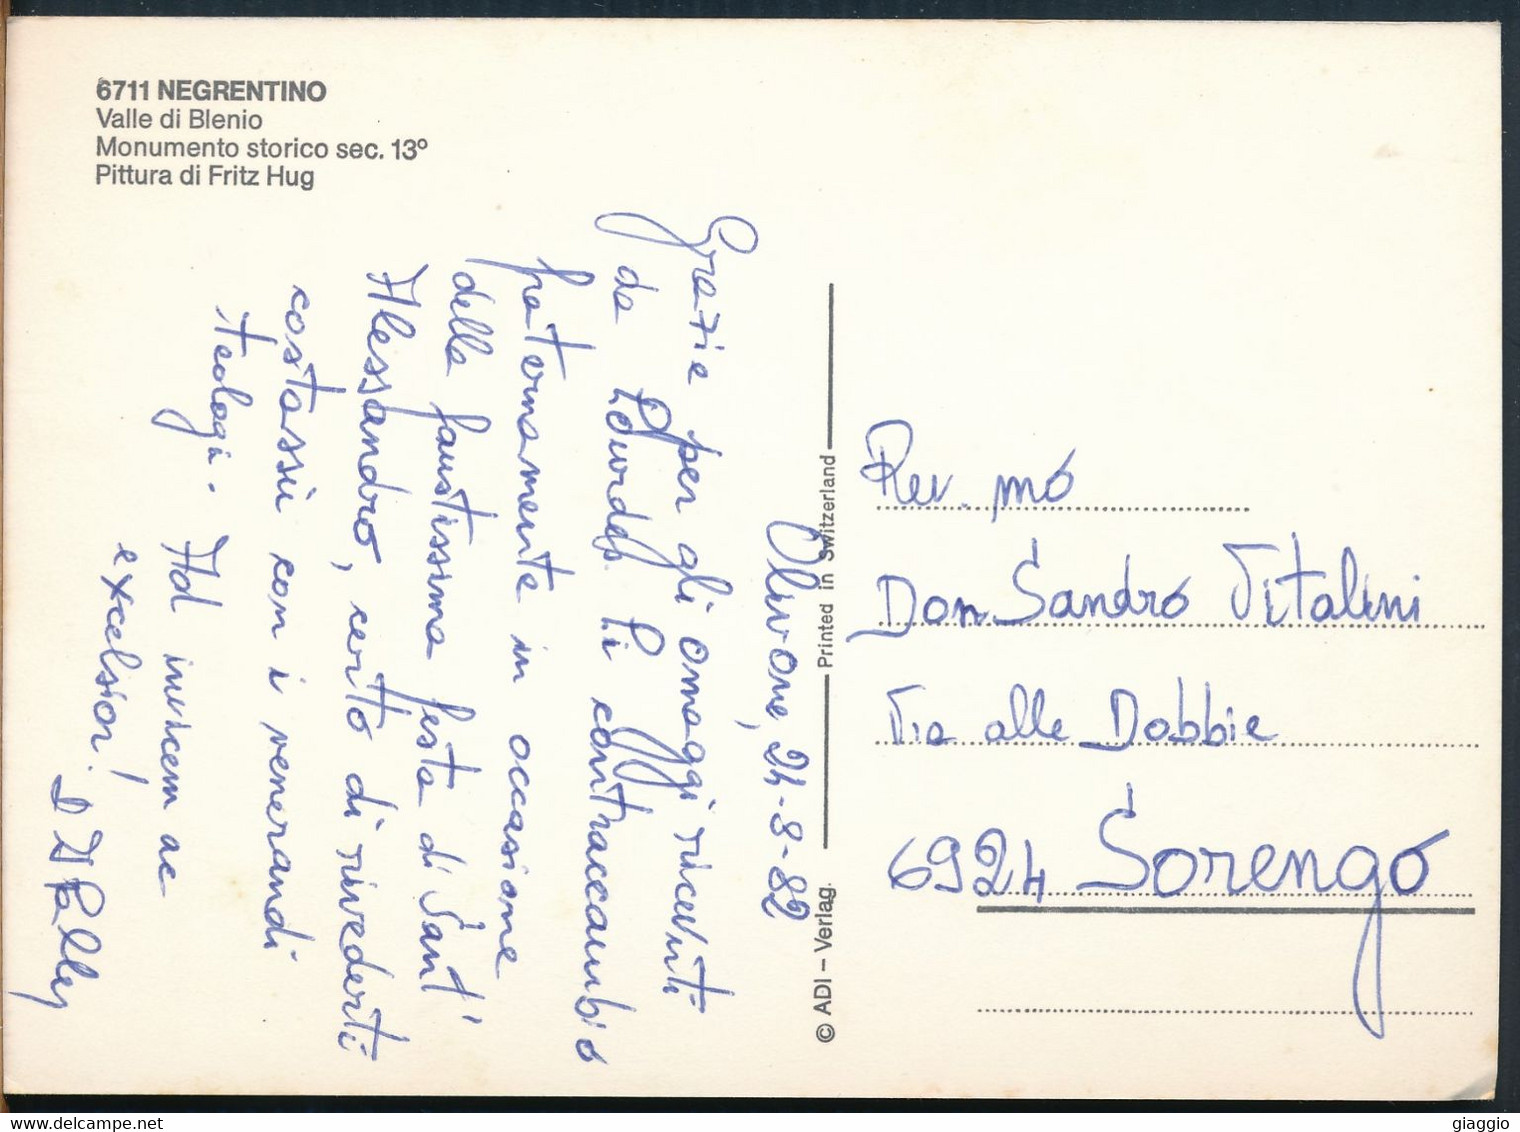 6711 NEGRENTINO
Valle di Blenio
Monumento storico sec. 13º
Pittura di Fritz Hug
Olivone, 24-8-82
Grazie per gli omaggi ricevuti
da Lourdes. Li contraccambio
fraternamente in occasione
della faustissima festa di Sant'
Alessandro, certo di rivederti
costassù con i venerandi
teologi. Ad invicem ac
excelsior!
© ADI – Verlag. Printed in Switzerland
Rev. mo
Don Sandro Vitalini
Via alle Dobbie
6924 Sorengo
giaggio